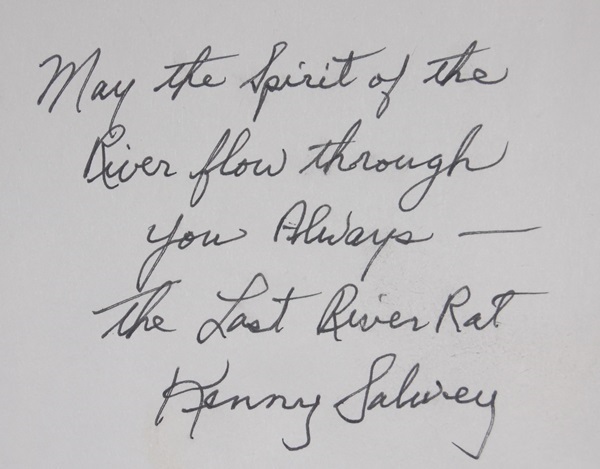 May the Spirit of the
River flow through
you Always —
the Last River Rat
Kenny Salwey